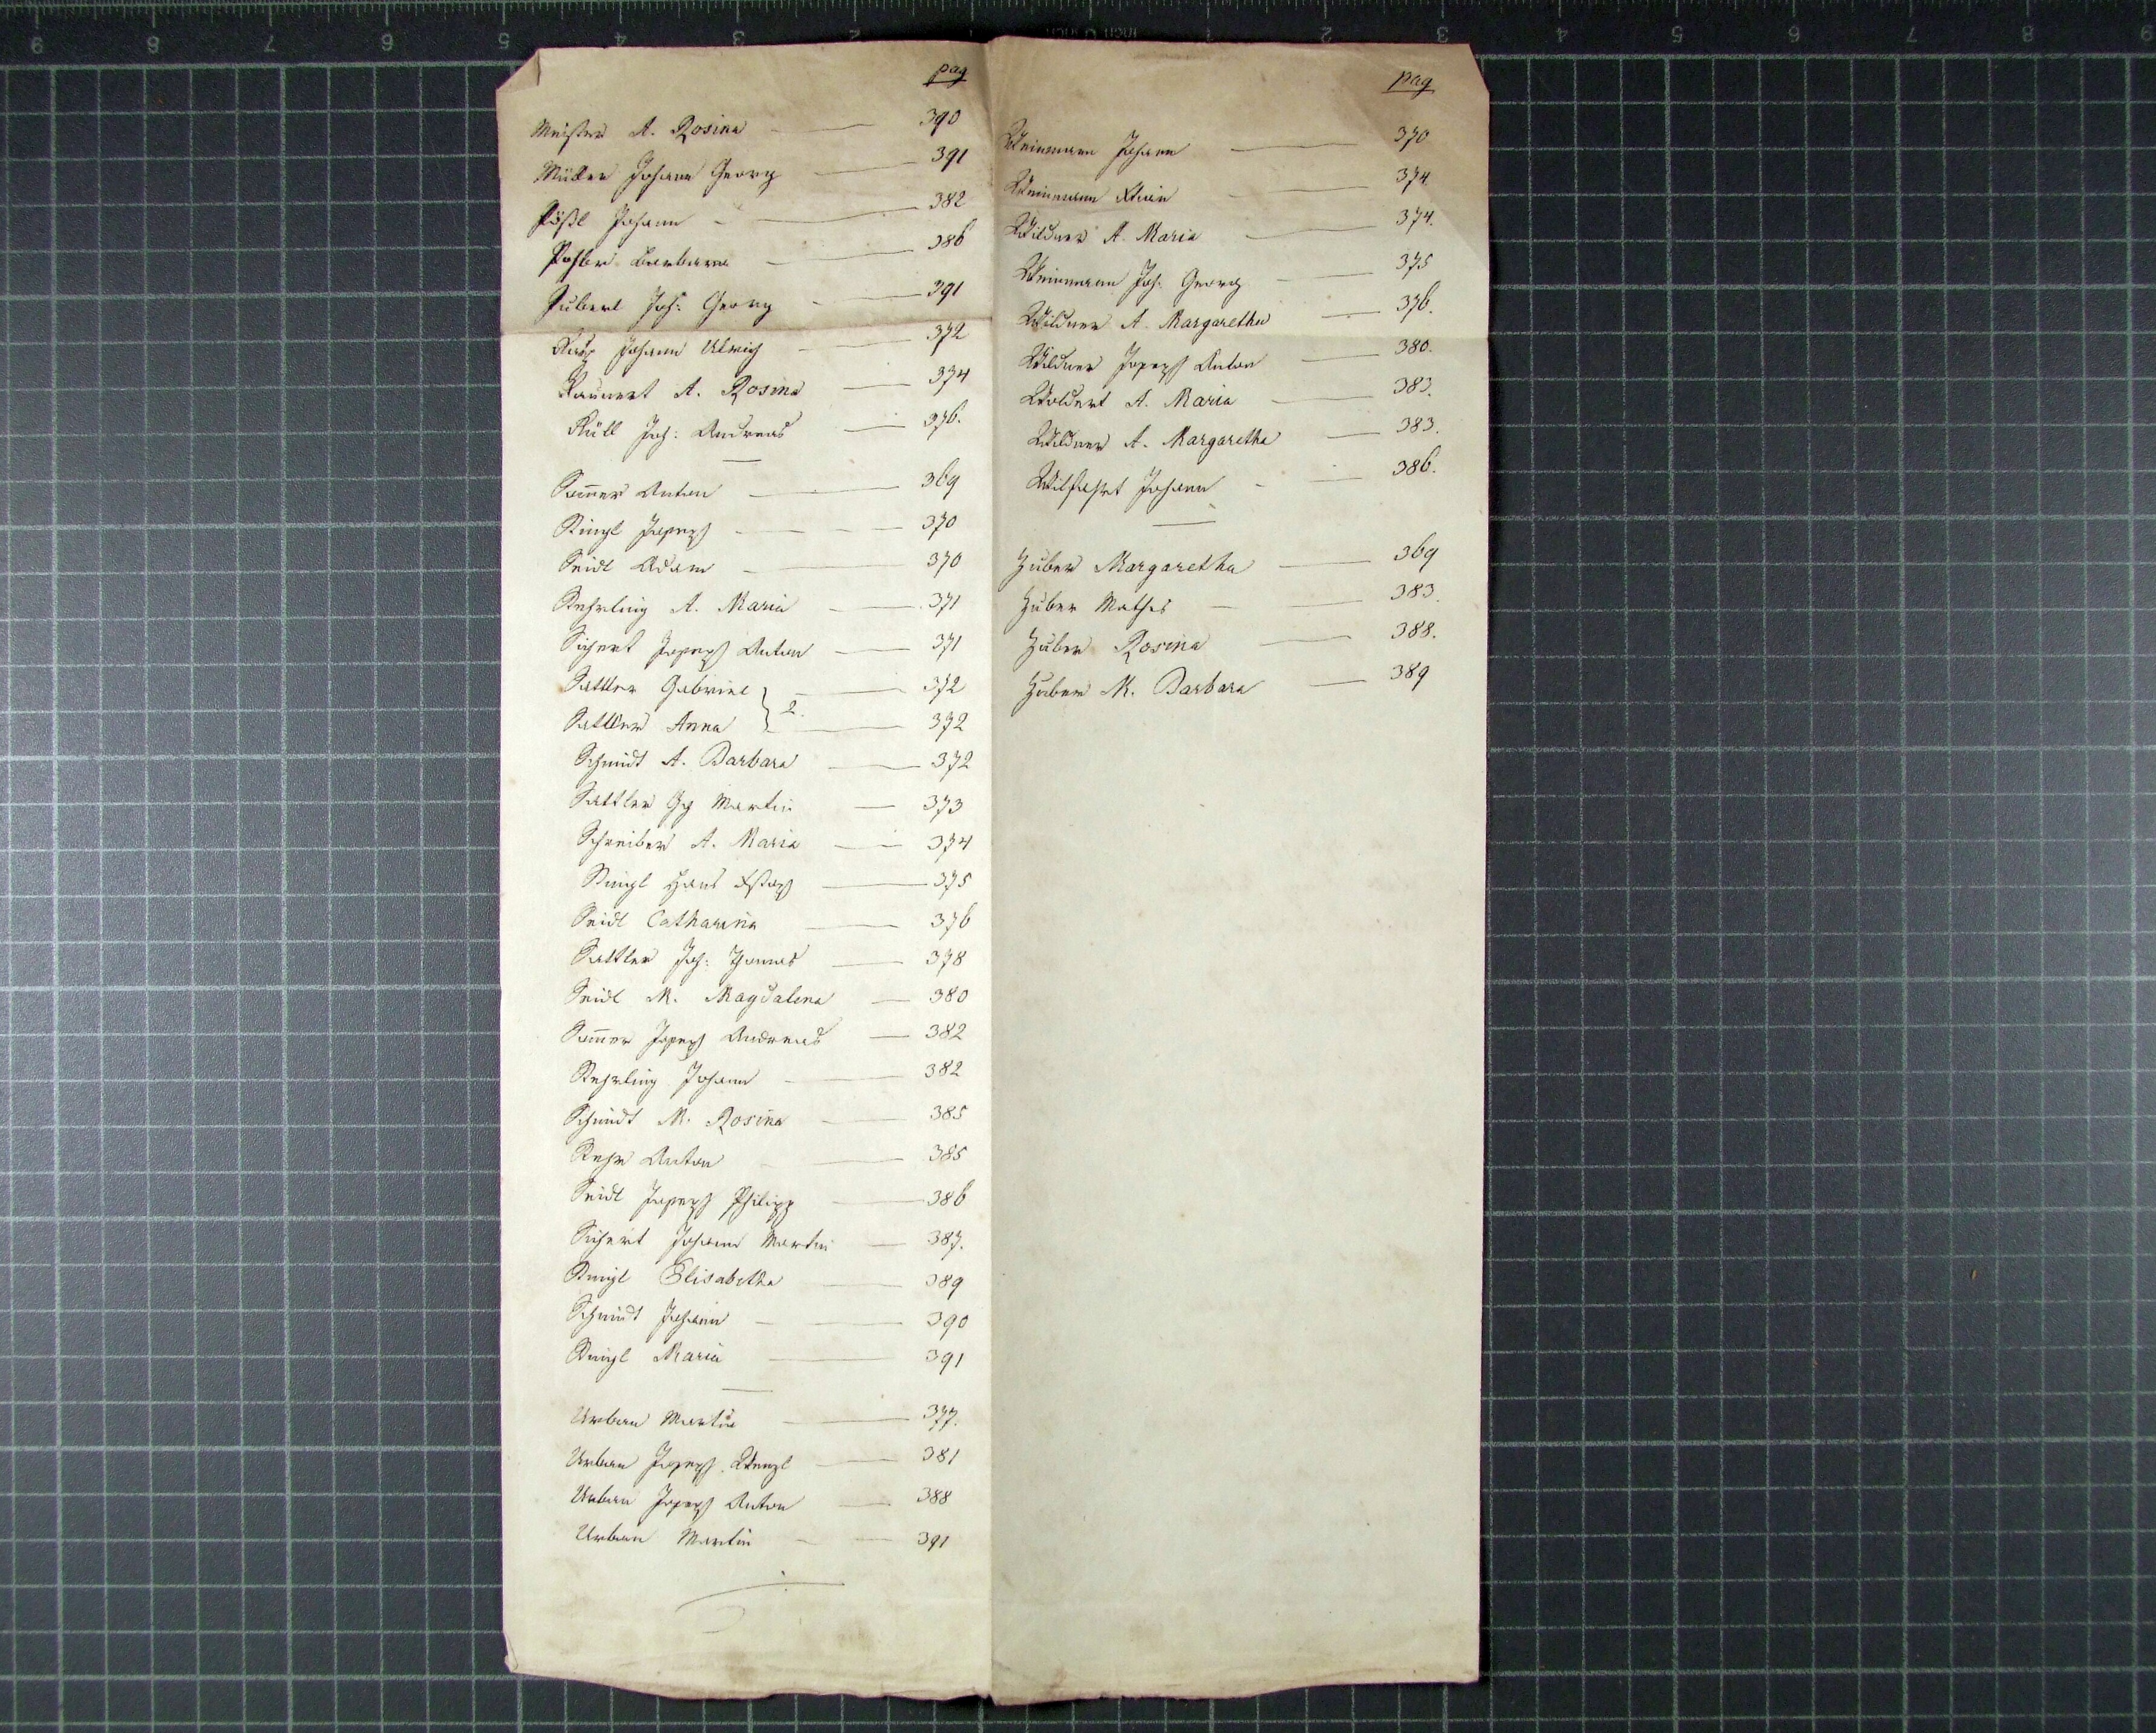 pag
Meister A. Rosina 390
Müller Johann Georg 391
Pößl Johann 382
Pohler Barbara 386
Joh: Georg 391
Johann Ulrich 372
A. Rosina 374
Rüll Joh: Andreas 376.
Sam̅er Anton 369
Stingl Joseph 370
Seidl Adam 370
Stehrling A. Maria 371
Sichert Joseph Anton 371
Sattler Gabriel 372
Sattler Anna } 2. 372
Schmidt A. Barbara 372
Sattler Gg Martin 373
Schreiber A. Maria 374
Stingl Hans 375
Seidl Catharina 376
Sattler Joh: Thomas 378
Seidl M. Magdalena 380
Sam̅er Joseph Andreas 382
Stehrling Johann 382
Schmidt M. Rosina 385
Stehr Anton 385
Seidl Joseph Philipp 386
Sichert Johann Martin 387.
Stingl Elisabetha 389
Schmidt Johann 390
Stingl Maria 391
Urban Martin 377.
Urban Joseph Wenzl 381
Urban Joseph Anton 388
Urban Martin 391
pag
Weinmann Johann 370
Weinmann 374
Wildner A. Maria 374.
Weinmann Joh: Georg 375
Wildner A. Margaretha 376.
Wildner Joseph Anton 380.
Woldert A. Maria 383.
Wildner A. Margaretha 383.
Wilfahrt Johann 386.
Zuber Margaretha 369
Zuber Mathes 383.
Zuber Rosina 388.
Zuber M. Barbara 389